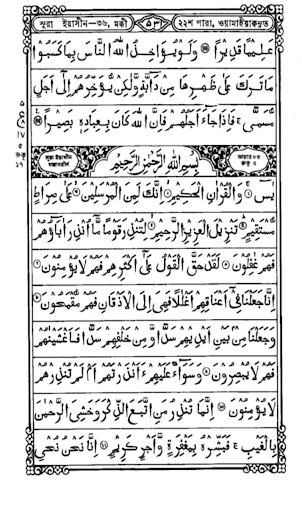 সুরা ইয়াসীন—৩৬, মক্কী ৫৩১ ২২শ পারা, ওয়ামাইয়াক্বনুত
عَلِيْمًا قَدِيْرًا ۝ وَلَوْ يُؤَاخِذُ اللهُ النَّاسَ بِمَا كَسَبُوْا
مَا تَرَكَ عَلٰى ظَهْرِهَا مِنْ دَآبَّةٍ وَّلٰكِنْ يُّؤَخِّرُهُمْ اِلٰٓى اَجَلٍ
مُّسَمًّى ۚ فَاِذَا جَآءَ اَجَلُهُمْ فَاِنَّ اللهَ كَانَ بِعِبَادِهٖ بَصِيْرًا ۝
সূরা ইয়াসীন
بِسْمِ اللهِ الرَّحْمٰنِ الرَّحِيْمِ
আয়াত ৮৩
রুকু ৫
يٰسٓ ۝ وَالْقُرْاٰنِ الْحَكِيْمِ ۝ اِنَّكَ لَمِنَ الْمُرْسَلِيْنَ ۝ عَلٰى صِرَاطٍ
مُّسْتَقِيْمٍ ۝ تَنْزِيْلَ الْعَزِيْزِ الرَّحِيْمِ ۝ لِتُنْذِرَ قَوْمًا مَّآ اُنْذِرَ اٰبَآؤُهُمْ
فَهُمْ غٰفِلُوْنَ ۝ لَقَدْ حَقَّ الْقَوْلُ عَلٰٓى اَكْثَرِهِمْ فَهُمْ لَا يُؤْمِنُوْنَ ۝
اِنَّا جَعَلْنَا فِيْٓ اَعْنَاقِهِمْ اَغْلٰلًا فَهِيَ اِلَى الْاَذْقَانِ فَهُمْ مُّقْمَحُوْنَ ۝
وَجَعَلْنَا مِنْۢ بَيْنِ اَيْدِيْهِمْ سَدًّا وَّمِنْ خَلْفِهِمْ سَدًّا فَاَغْشَيْنٰهُمْ
فَهُمْ لَا يُبْصِرُوْنَ ۝ وَسَوَآءٌ عَلَيْهِمْ ءَاَنْذَرْتَهُمْ اَمْ لَمْ تُنْذِرْهُمْ
لَا يُؤْمِنُوْنَ ۝ اِنَّمَا تُنْذِرُ مَنِ اتَّبَعَ الذِّكْرَ وَخَشِيَ الرَّحْمٰنَ
بِالْغَيْبِ ۚ فَبَشِّرْهُ بِمَغْفِرَةٍ وَّاَجْرٍ كَرِيْمٍ ۝ اِنَّا نَحْنُ نُحْيِ